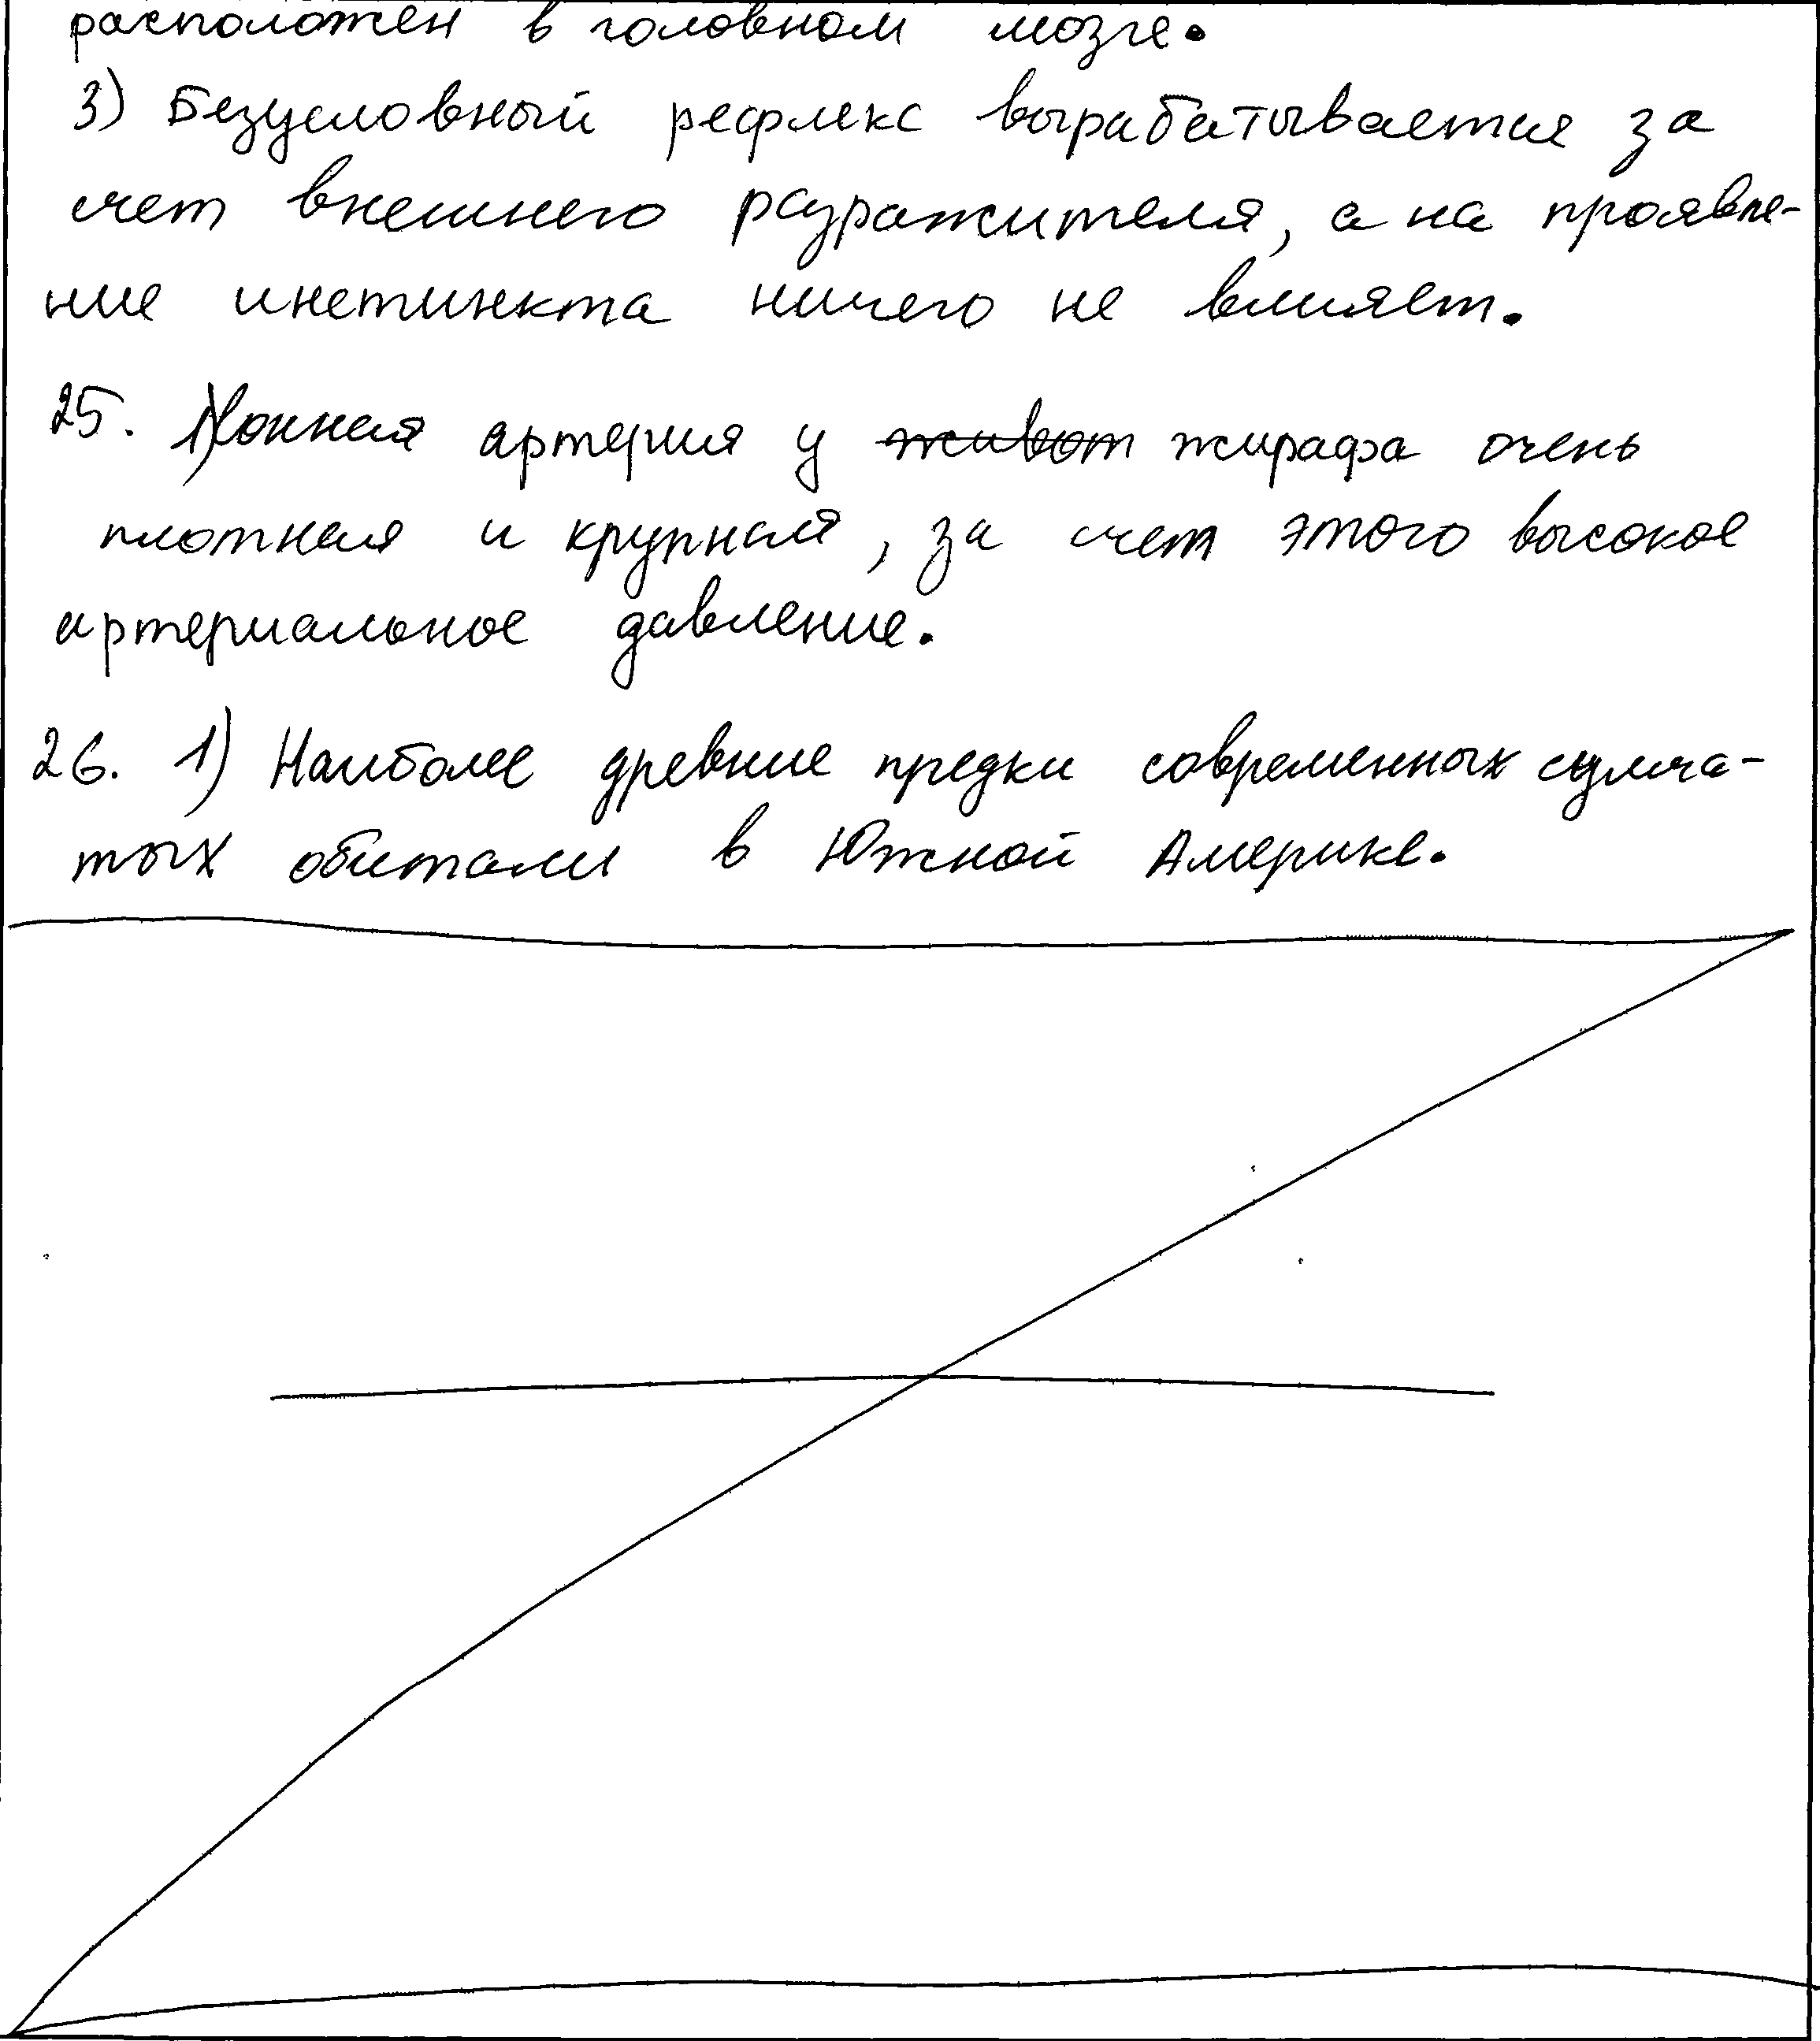 расположен в головном мозге.
3) Безусловный рефлекс вырабатывается за
счет внешнего раздражителя, а на проявле-
ние инстинкта ничего не влияет.
25. 1) Сонная артерия у живот жирафа очень
плотная и крупная, за счет этого высокое
артериальное давление.
26. 1) Наиболее древние предки современных сумча-
тых обитали в Южной Америке.